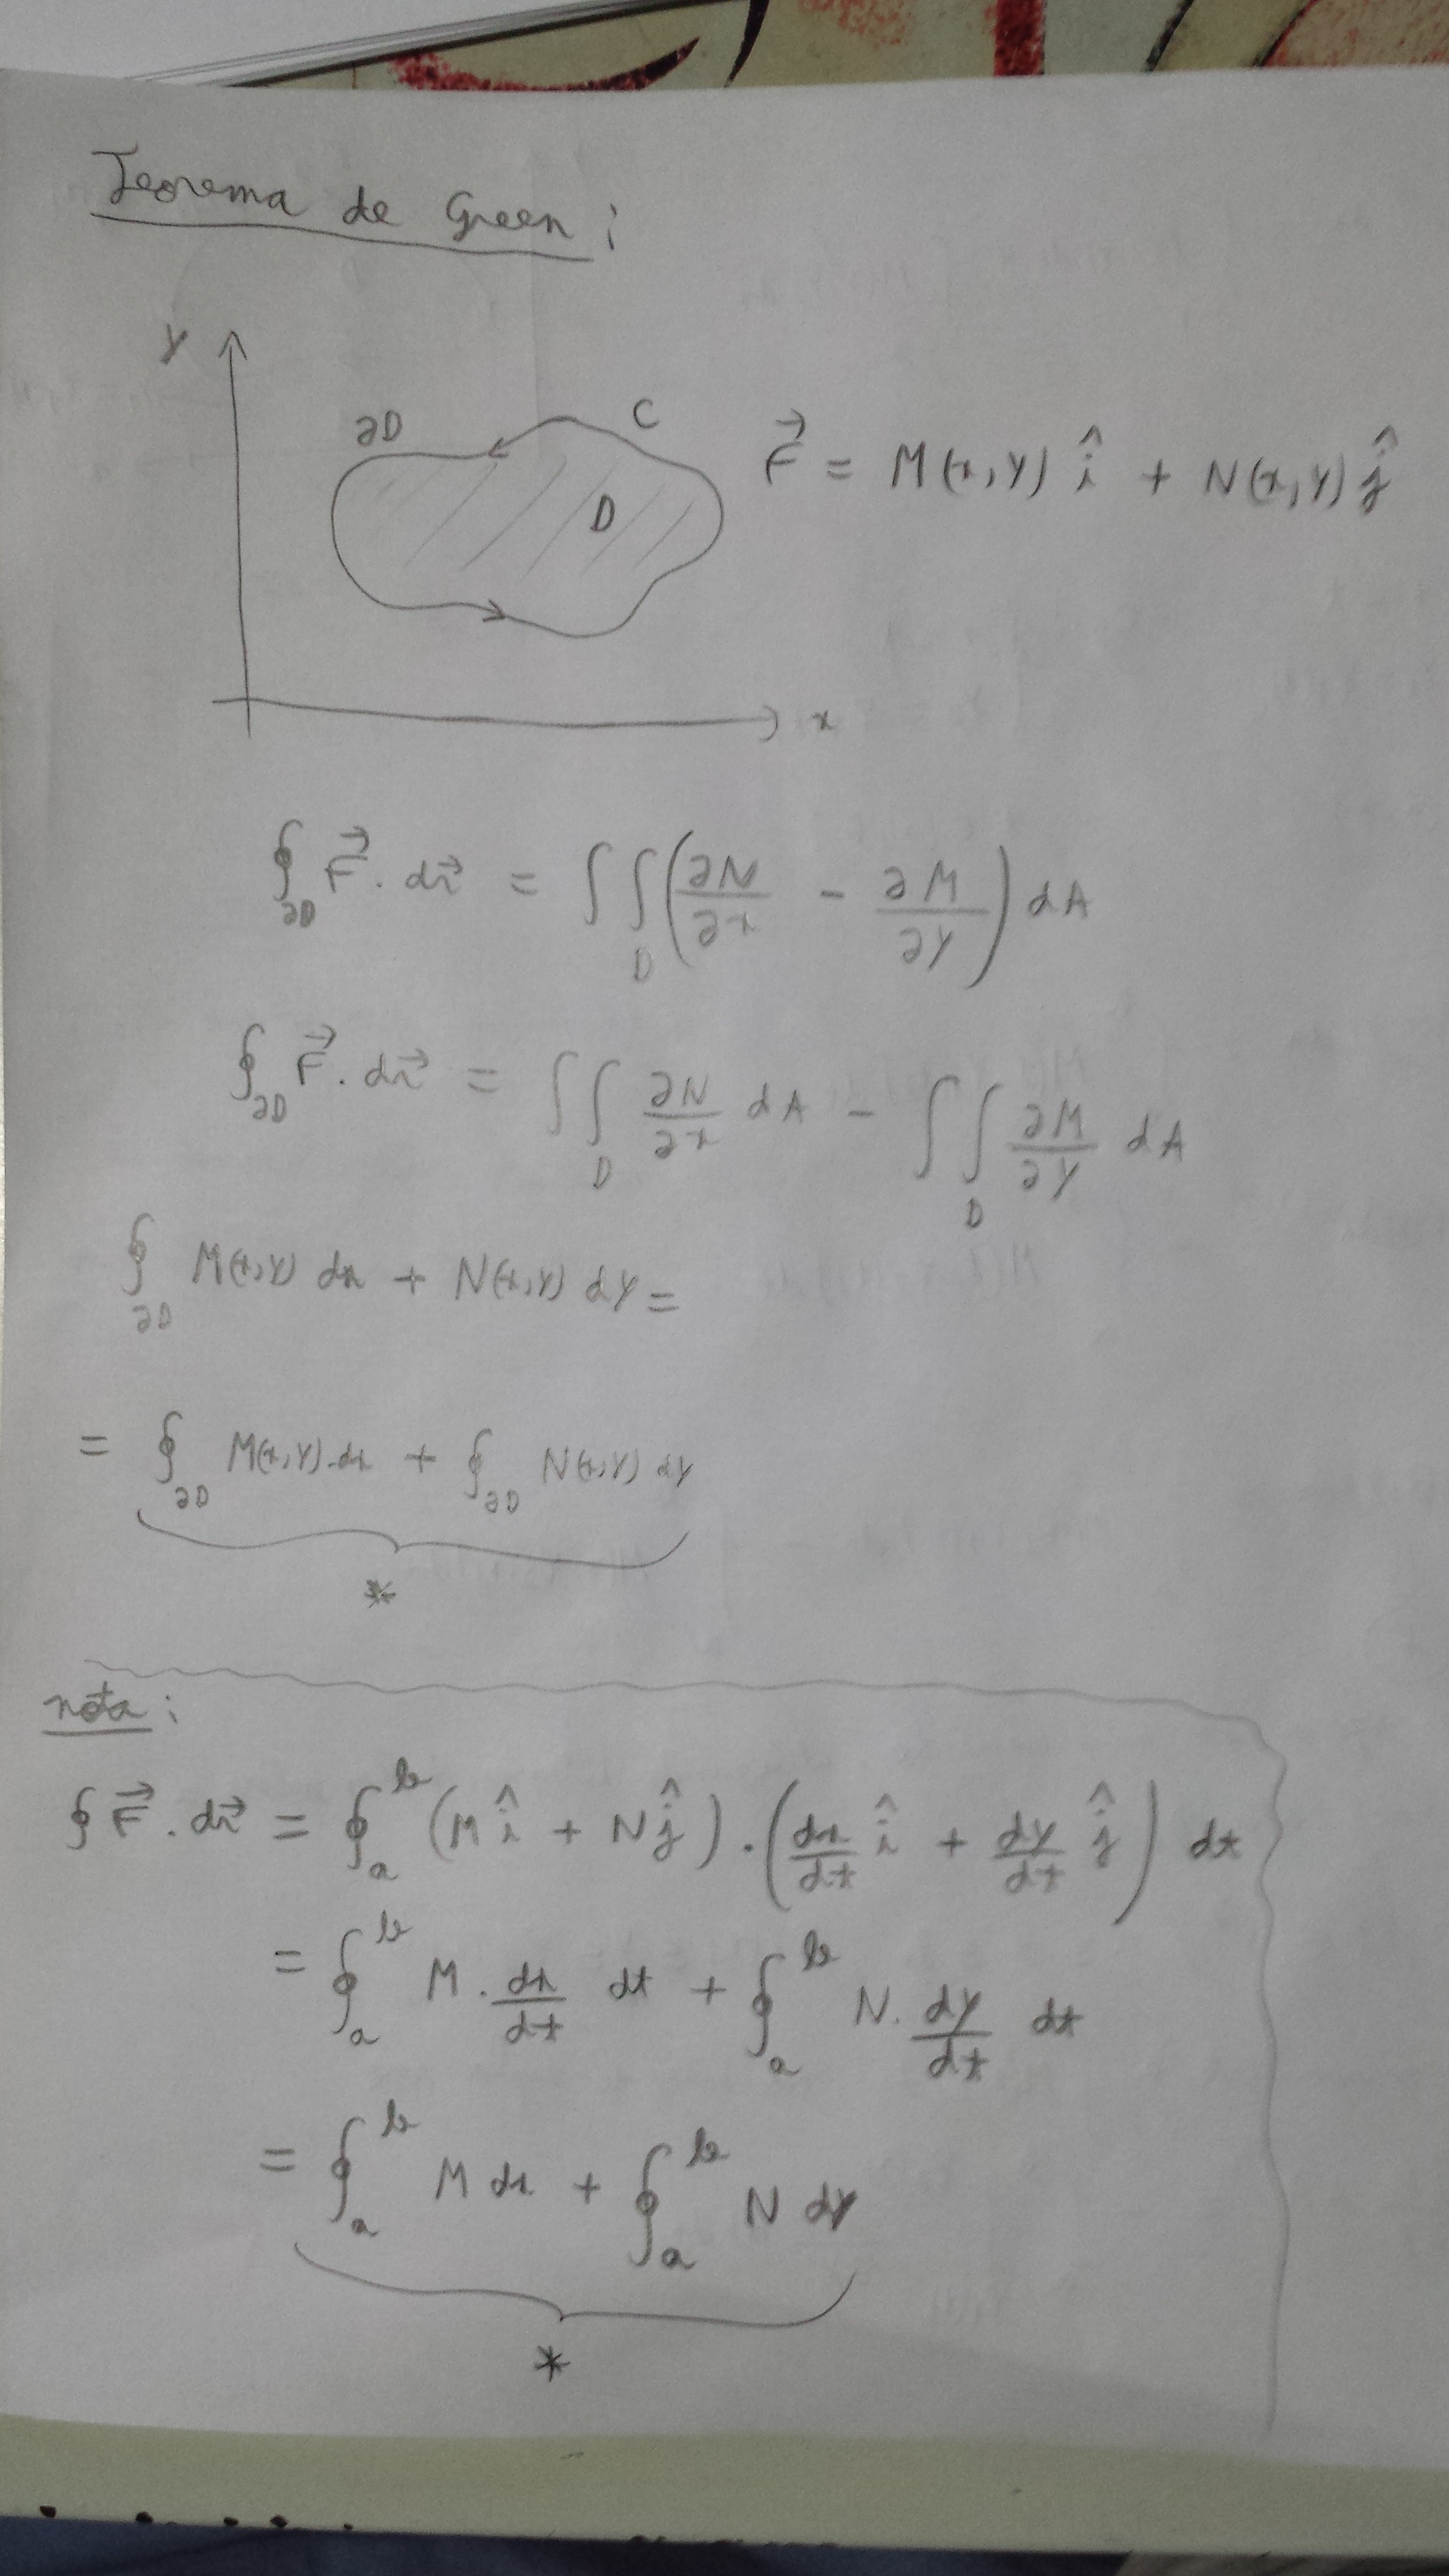 Teorema de Green:
y
∂D
C
D
x
F⃗ = M(x,y) î + N(x,y) ĵ
∮_∂D F⃗ . dr⃗ = ∫∫_D (∂N/∂x - ∂M/∂y) dA
∮_∂D F⃗ . dr⃗ = ∫∫_D ∂N/∂x dA - ∫∫_D ∂M/∂y dA
∮_∂D M(x,y) dx + N(x,y) dy =
= ∮_∂D M(x,y).dx + ∮_∂D N(x,y) dy
*
nota:
∮ F⃗ . dr⃗ = ∮_a^b (M î + N ĵ) . (dx/dt î + dy/dt ĵ) dt
= ∮_a^b M . dx/dt dt + ∮_a^b N . dy/dt dt
= ∮_a^b M dx + ∮_a^b N dy
*